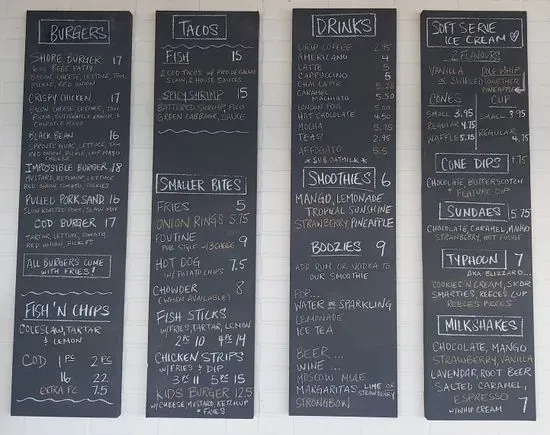 BURGERS
SHORE BURGER 17
6oz BEEF PATTY
BACON, CHEESE, LETTUCE, TOM
PICKLE, RED ONION
CRISPY CHICKEN 17
BACON, CHEESE, LETTUCE, TOM
PICKLE, RANCH &
CHIPOTLE MAYO
BLACK BEAN 16
LETTUCE, TOM
RED ONION, PICKLE, CHIP MAYO
CHEESE
IMPOSSIBLE BURGER 18
MUSTARD, KETCHUP, LETTUCE
RED ONION, TOMATO, PICKLES
PULLED PORK SAND 16
SLOW ROASTED PORK, SLAW MIX
COD BURGER 17
TARTAR, LETTUCE, TOMATO
RED ONION, PICKLES
ALL BURGERS COME
WITH FRIES!
FISH 'N CHIPS
COLESLAW, TARTAR
& LEMON
COD 1PC 2PC
16 22
EXTRA PC 7.5
TACOS
FISH 15
2 COD TACOS W/ PICO DE GALLO
SLAW, 2 HOUSE SAUCES
SPICY SHRIMP 15
BATTERED SHRIMP, PICO
GREEN CABBAGE, SAUCE
SMALLER BITES
FRIES 5
ONION RINGS 5.75
POUTINE 9
PUB STYLE
HOT DOG 7.5
W/ POTATO CHIPS
CHOWDER 8
(WHEN AVAILABLE)
FISH STICKS
W/FRIES, TARTAR, LEMON
2PC 10 4PC 14
CHICKEN STRIPS
W/FRIES & DIP
3PC 11 5PC 15
KIDS BURGER 12.5
W/CHEESE, MUSTARD, KETCHUP
+ FRIES
DRINKS
DRIP COFFEE 2.95
AMERICANO 4
LATTE 5
CAPPUCCINO 5
CHAI LATTE 5.25
CARAMEL
MACHIATO 5.50
LONDON FOG 5.00
HOT CHOCOLATE 4.50
MOCHA 5.75
TEAS 2.95
AFFOGATO 5.5
* SUB OATMILK *
SMOOTHIES 6
MANGO, LEMONADE
TROPICAL SUNSHINE
STRAWBERRY PINEAPPLE
BOOZIES 9
ADD RUM OR VODKA TO
OUR SMOOTHIE
POP...
WATER OR SPARKLING
LEMONADE
ICE TEA
BEER...
WINE...
MOSCOW MULE
MARGARITAS, LIME OR
STRAWBERRY
STRONGBOW
SOFT SERVE
ICE CREAM
2 FLAVOURS
VANILLA DOLE WHIP
OR SWIRLED TOGETHER
PINEAPPLE
CONES CUP
SMALL 3.95 SMALL 3.95
REGULAR 4.75 REGULAR 4.75
WAFFLE 5.75
CONE DIPS +.75
CHOCOLATE, BUTTERSCOTCH
* FEATURE DIP
SUNDAES 5.75
CHOCOLATE, CARAMEL, MANGO
STRAWBERRY, HOT FUDGE
TYPHOON 7
AKA BLIZZARD...
COOKIES N CREAM, SKOR
SMARTIES, REECES CUP
REECES PIECES
MILKSHAKES
CHOCOLATE, MANGO
STRAWBERRY, VANILLA
LAVENDAR, ROOT BEER
SALTED CARAMEL,
ESPRESSO
W/WHIP CREAM 7